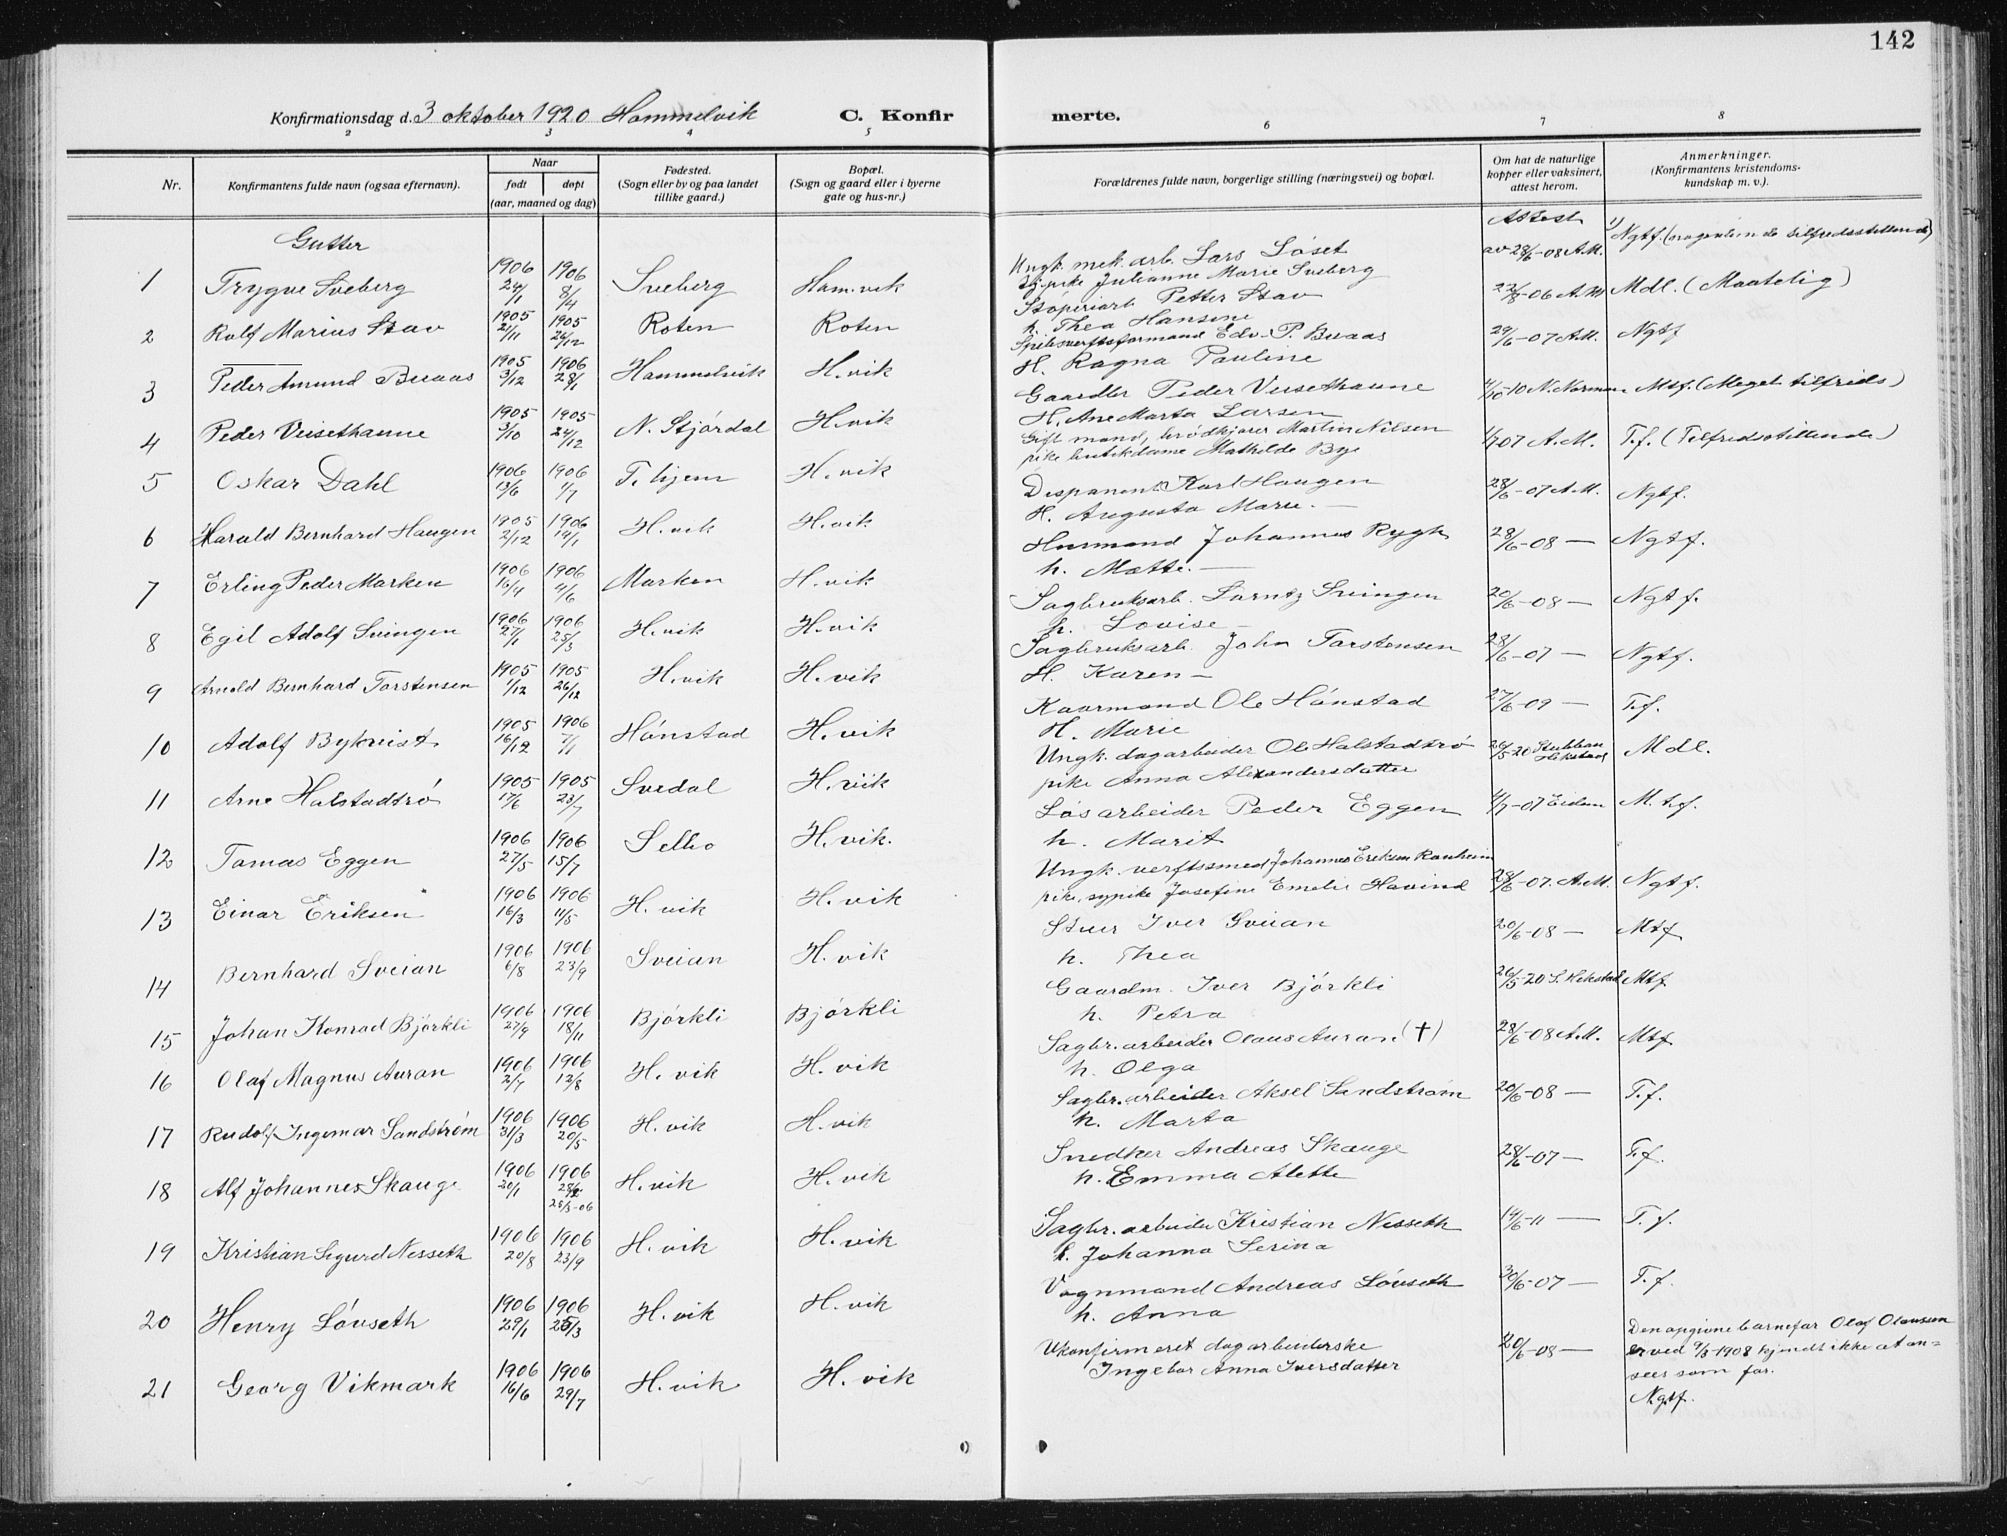 142
Konfirmationsdag d. 3 oktober 1920 Hommelvik C. Konfirmerte.
2 3 4 5 6 7 8
Nr. Konfirmantens fulde navn (ogsaa efternavn). Naar født døpt (aar, maaned og dag) Fødested. (Sogn eller by og paa landet tillike gaard.) Bopæl. (Sogn og gaard eller i byerne gate og hus-nr.) Forældrenes fulde navn, borgerlige stilling (næringsvei) og bopæl. Om hat de naturlige kopper eller vaksinert, attest herom. Anmerkninger. (Konfirmantens kristendoms-kundskap m. v.).
Gutter
1 Trygve Sveberg 1906 24/1 1906 8/4 Sveberg Ham.vik Ungk. mek. arb. Lars Løset pike Julianne Marie Sveberg Attest av 28/6-08 A.M. Ngtf.
2 Rolf Marius Stav 1905 21/11 1905 26/12 Roten Roten Støperiarb Petter Stav h. Thea Hansine 22/8-06 A.M Mdl. (Maatelig)
3 Peder Amund Buaas 1905 3/12 1906 28/1 Hammelvik H.vik Edv. P. Buaas H. Ragna Pauline 29/6-07 A.M. Ngtf
4 Peder Veisethaune 1905 3/10 1905 24/12 N. Stjørdal H.vik Gaardbr Peder Veisethaune H. Ane Marta Larsen 4/10-10 N. Norman Mtf. (Meget tilfreds)
5 Oskar Dahl 1906 13/6 1906 1/7 T.hjem H.vik Gift mand, brødkjører Martin Nilsen pike butikdame Mathilde Bye 1/7 07 A.M. T.f. (Tilfredsstillende)
6 Harald Bernhard Haugen 1905 2/12 1906 14/1 H.vik H.vik Disponent Karl Haugen H. Augusta Marie. — 28/6-07 A.M. Ngtf.
7 Erling Peder Marken 1906 16/4 1906 4/6 Marken H.vik Husmand Johannes Rygh h. Mette. — 28/6-08 — Ngtf.
8 Egil Adolf Svingen 1906 27/1 1906 25/3 H.vik H.vik Sagbruksarb. Lorntz Svingen h. Lovise — 20/6-08 — Ngtf.
9 Arnold Bernhard Torstensen 1905 1/12 1905 26/12 H.vik H.vik Sagbruksarb. John Torstensen H. Karen — 28/6-07 — Ngtf.
10 Adolf Bykvist 1905 16/12 1906 7/1 Hønstad H.vik Kaarmand Ole Hønstad H. Marie 27/6-09 — T.f.
11 Arne Halstadtrø 1905 17/6 1905 23/7 Svedal H.vik Ungk. dagarbeider Ole Halstadtrø pike Anna Alexandersdatter 26/5 20 Mdl.
12 Tomas Eggen 1906 27/5 1906 15/7 Selbo H.vik. Løsarbeider Peder Eggen h. Marit 4/7-07 Eidem M.t.f.
13 Einar Eriksen 1906 16/3 1906 4/5 H.vik H.vik Ungk. verftssmed Johannes Eriksen Ranheim pike, sypike Josefine Emelie Hovind 28/6-07. A.M. Ngtf.
14 Bernhard Sveian 1906 6/8 1906 23/9 Sveian H.vik Stuer Iver Sveian h. Thea 20/6-08 — Mtf
15 Johan Konrad Bjørkli 1906 27/9 1906 18/11 Bjørkli Bjørkli Gaardm. Iver Bjørkli h. Petra 26/5-20 S. Hekstad Mtf
16 Olaf Magnus Auran 1906 2/7 1906 12/8 H.vik H.vik Sagbr.arbeider Olaus Auran (†) h. Olga 28/6-08 A.M. Mtf
17 Rudolf Ingemar Sandstrøm 1906 31/3 1906 20/5 H.vik H.vik Sagbr.arbeider Aksel Sandstrøm h. Marta 20/6-08 — T.f.
18 Alf Johannes Skauge 1906 20/1 1906 25/3-06 H.vik H.vik Snedker Andreas Skauge h. Emma Alette 28/6-07 — T.f.
19 Kristian Sigurd Nesseth 1906 20/8 1906 23/9 H.vik H.vik Sagbr.arbeider Kristian Nesseth h. Johanna Serina 14/6-11 — T.f.
20 Henry Løvseth 1906 29/1 1906 25/3 H.vik H.vik Vognmand Andreas Løvseth h. Anna 30/6-07 — T.f.
21 Georg Vikmark 1906 16/6 1906 29/7 H.vik H.vik Ukonfirmeret dagarbeiderske Ingebor Anna Iversdatter 20/6-08 — Den opgivne barnefar Olaf Olaussen er ved 9/3-1908 kjendt ikke at ansees som far. Ngtf.